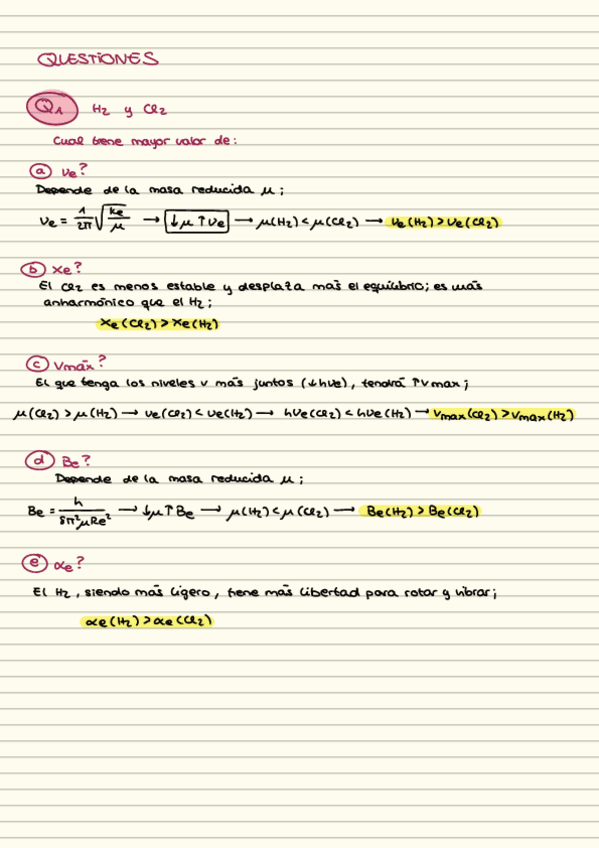 QUESTIONES
Q1 H2 y Cl2
Cual tiene mayor valor de:
a νe?
Depende de la masa reducida μ;
νe = 1/2π √(ke/μ) → ↓μ ↑νe → μ(H2) < μ(Cl2) → νe(H2) > νe(Cl2)
b xe?
El Cl2 es menos estable y desplaza más el equilibrio; es más
anharmónico que el H2;
xe(Cl2) > xe(H2)
c Vmáx?
El que tenga los niveles v más juntos (↓hνe), tendrá ↑vmax;
μ(Cl2) > μ(H2) → νe(Cl2) < νe(H2) → hνe(Cl2) < hνe(H2) → vmax(Cl2) > vmax(H2)
d Be?
Depende de la masa reducida μ;
Be = h/8π²μRe² → ↓μ ↑Be → μ(H2) < μ(Cl2) → Be(H2) > Be(Cl2)
e αe?
El H2, siendo más ligero, tiene más libertad para rotar y vibrar;
αe(H2) > αe(Cl2)